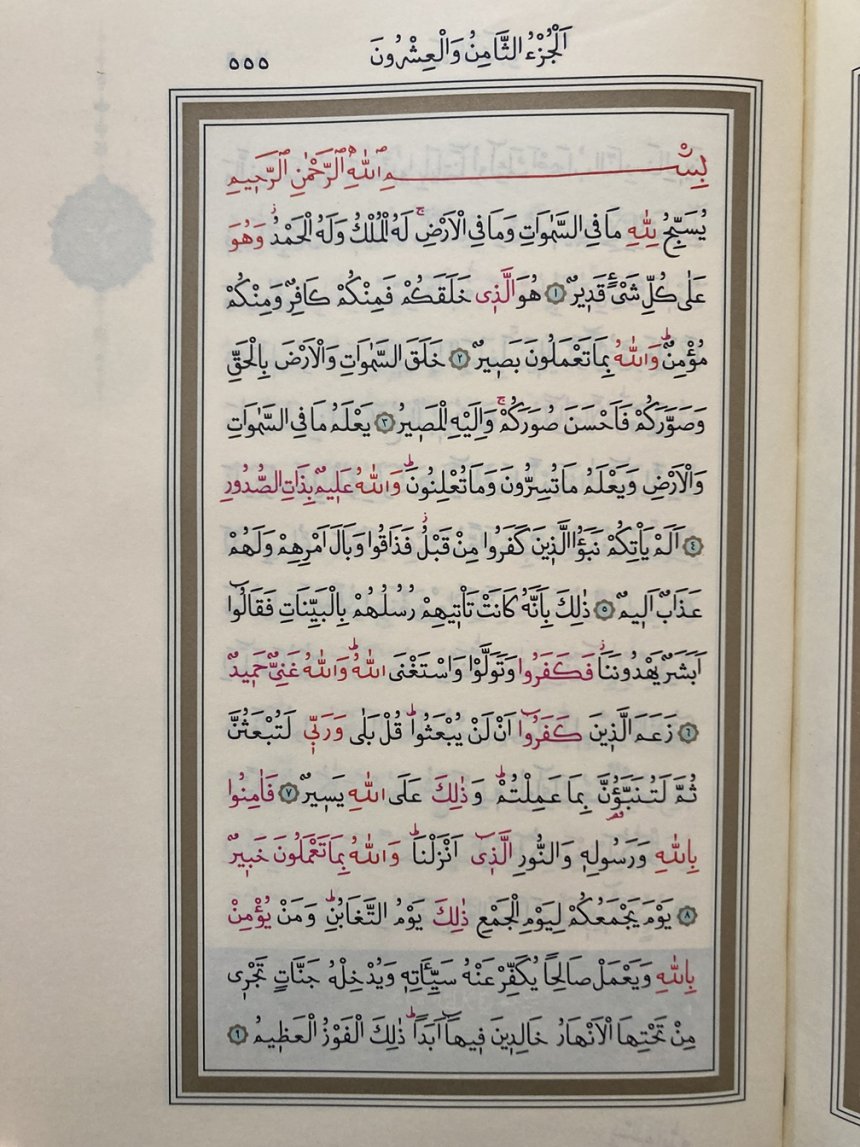 اَلْجُزْءُ الثَّامِنُ وَالْعِشْرُونَ ٥٥٥
بِسْمِ اللّٰهِ الرَّحْمٰنِ الرَّحٖيمِ
يُسَبِّحُ لِلّٰهِ مَا فِى السَّمٰوَاتِ وَمَا فِى الْاَرْضِۚ لَهُ الْمُلْكُ وَلَهُ الْحَمْدُؗ وَهُوَ
عَلٰى كُلِّ شَىْءٍ قَدٖيرٌ ﴿١﴾ هُوَ الَّذٖى خَلَقَكُمْ فَمِنْكُمْ كَافِرٌ وَمِنْكُمْ
مُؤْمِنٌؕ وَاللّٰهُ بِمَا تَعْمَلُونَ بَصٖيرٌ ﴿٢﴾ خَلَقَ السَّمٰوَاتِ وَالْاَرْضَ بِالْحَقِّ
وَصَوَّرَكُمْ فَاَحْسَنَ صُوَرَكُمْۚ وَاِلَيْهِ الْمَصٖيرُ ﴿٣﴾ يَعْلَمُ مَا فِى السَّمٰوَاتِ
وَالْاَرْضِ وَيَعْلَمُ مَا تُسِرُّونَ وَمَا تُعْلِنُونَؕ وَاللّٰهُ عَلٖيمٌ بِذَاتِ الصُّدُورِ
﴿٤﴾ اَلَمْ يَاْتِكُمْ نَبَؤُا الَّذٖينَ كَفَرُوا مِنْ قَبْلُؗ فَذَاقُوا وَبَالَ اَمْرِهِمْ وَلَهُمْ
عَذَابٌ اَلٖيمٌ ﴿٥﴾ ذٰلِكَ بِاَنَّهُ كَانَتْ تَاْتٖيهِمْ رُسُلُهُمْ بِالْبَيِّنَاتِ فَقَالُٓوا
اَبَشَرٌ يَهْدُونَنَاؗ فَكَفَرُوا وَتَوَلَّوْا وَاسْتَغْنَى اللّٰهُؕ وَاللّٰهُ غَنِىٌّ حَمٖيدٌ
﴿٦﴾ زَعَمَ الَّذٖينَ كَفَرُٓوا اَنْ لَنْ يُبْعَثُواؕ قُلْ بَلٰى وَرَبّٖى لَتُبْعَثُنَّ
ثُمَّ لَتُنَبَّؤُنَّ بِمَا عَمِلْتُمْؕ وَذٰلِكَ عَلَى اللّٰهِ يَسٖيرٌ ﴿٧﴾ فَاٰمِنُوا
بِاللّٰهِ وَرَسُولِهٖ وَالنُّورِ الَّذٖٓى اَنْزَلْنَاؕ وَاللّٰهُ بِمَا تَعْمَلُونَ خَبٖيرٌ
﴿٨﴾ يَوْمَ يَجْمَعُكُمْ لِيَوْمِ الْجَمْعِ ذٰلِكَ يَوْمُ التَّغَابُنِؕ وَمَنْ يُؤْمِنْ
بِاللّٰهِ وَيَعْمَلْ صَالِحًا يُكَفِّرْ عَنْهُ سَيِّـَٔاتِهٖ وَيُدْخِلْهُ جَنَّاتٍ تَجْرٖى
مِنْ تَحْتِهَا الْاَنْهَارُ خَالِدٖينَ فٖيهَٓا اَبَدًاؕ ذٰلِكَ الْفَوْزُ الْعَظٖيمُ ﴿٩﴾